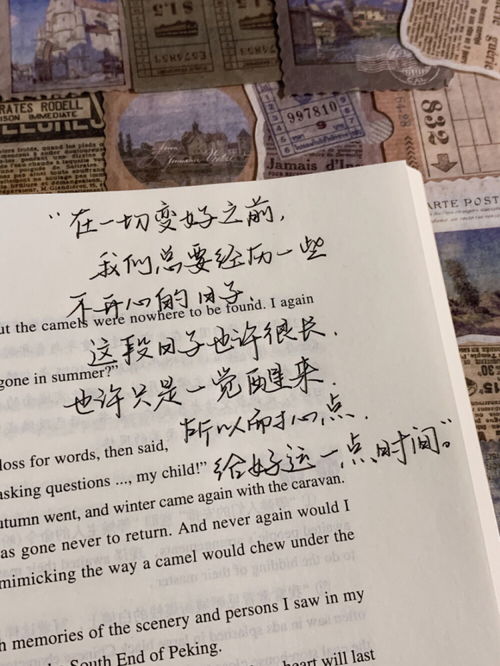 RATES RODELL
ISION IMMEDIATE
997810
9
Jamais d'In
832
ARTE POST
"在一切变好之前,
我们总要经历一些
不开心的日子,
ut the camels were nowhere to be found. I again
这段日子也许很长.
gone in summer?"
也许只是一觉醒来.
所以耐心点.
loss for words, then said,
给好运一点时间。"
asking questions ..., my child!"
utumn went, and winter came again with the caravan.
as gone never to return. And never again would I
mimicking the way a camel would chew under the
h memories of the scenery and persons I saw in my
South End of Peking.
heart will last